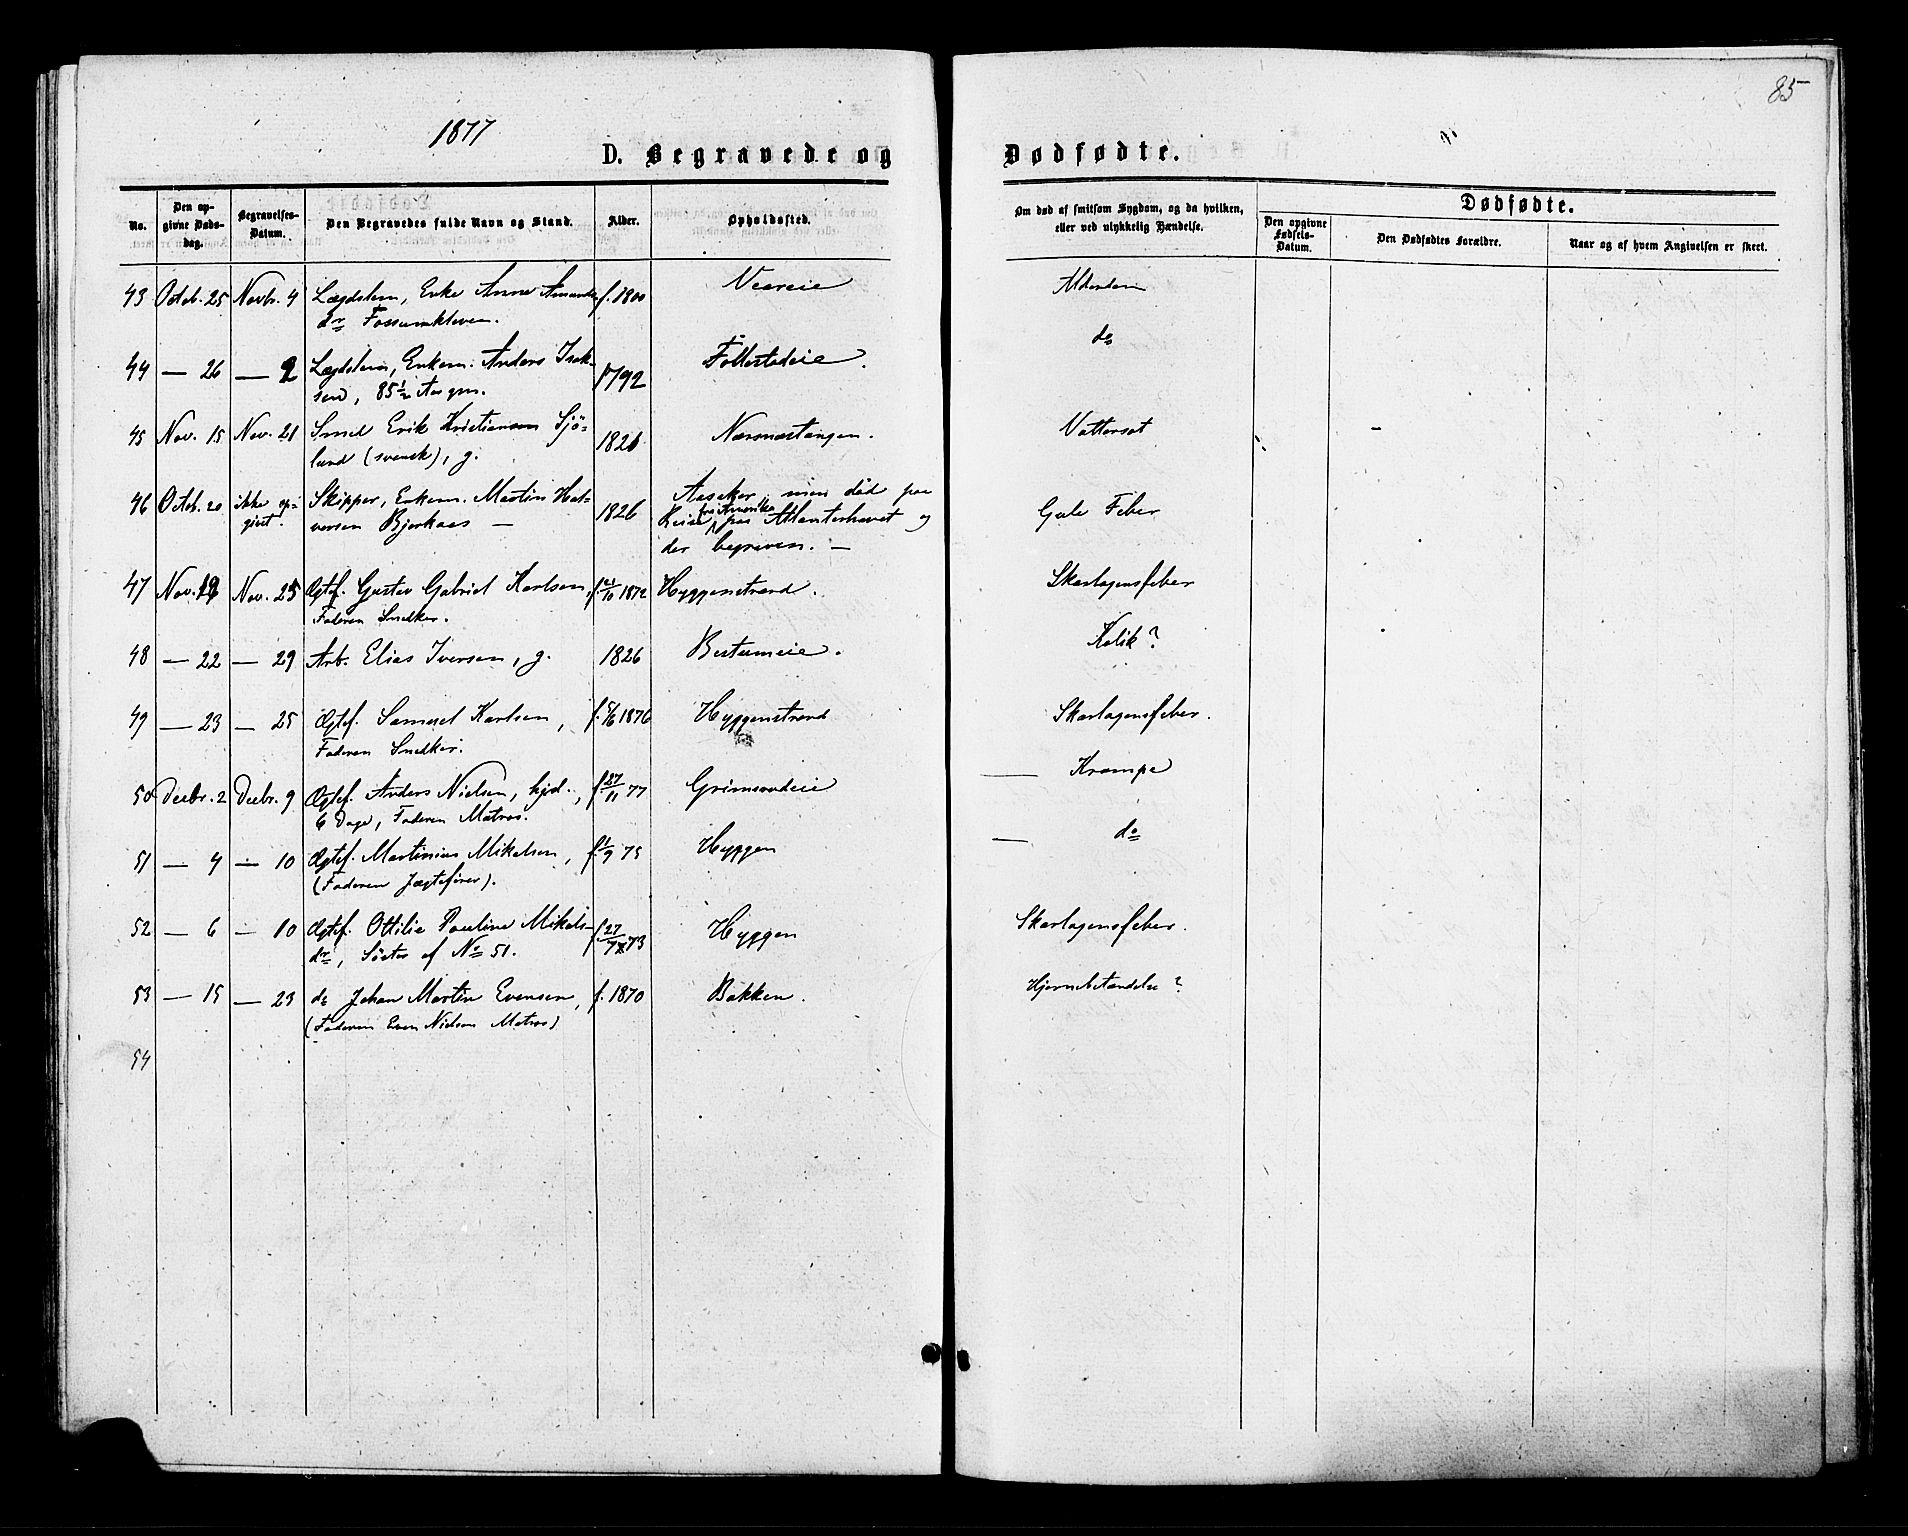 1877
85
D. Begravede og Dødfødte.
No. Den opgivne Døds-dag. Begravelses-Datum. Den Begravedes fulde Navn og Stand. Alder. Opholdssted. Om død af smitsom Sygdom, og da hvilken, eller ved ulykkelig Hændelse. Dødfødte.
Den opgivne Fødsels-Datum. Den Dødfødtes Forældre. Naar og af hvem Angivelsen er skeet.
43 Octob. 25 Novbr. 4 Lægdslem, Enke Anne Amunds- f. 1800 Veareie Alderdom
dr Fossumkleven.
44 — 26 — 2 Lægdslem, Enkem. Anders Isak- 1792 Follestadeie. do
sen, 85½ Aar gm.
45 Nov. 15 Nov. 21 Smed Erik Kristiansen Sjö- 1826 Nærsnestangen. Vattersot
lund (svensk), g.
46 Octob. 20 ikke op- Skipper, Enkem. Martin Hal- 1826 Aasaker, men död paa Gule Feber
givet. versen Bjerkaas — Reise fra Amerika paa Atlanterhavet og
der begraven. —
47 Nov. 19 Nov. 25 Ægtef. Gustav Gabriel Karlsen, f. 21/10 1872 Hyggenstrand. Skarlagensfeber
Faderen Snedker.
48 — 22 — 29 Arb. Elias Iversen, g. 1826 Bestumeie. Kolik?
49 — 23 — 25 Ægtef. Samuel Karlsen, f. 5/6 1876 Hyggenstrand Skarlagensfeber.
Faderen Snedker.
50 Decbr. 2 Decbr. 9 Ægtef. Anders Nielsen, hjd., f. 27/11 77 Grimsrudeie — Krampe
6 Dage, Faderen Matros.
51 — 4 — 10 Ægtef. Martinius Mikelsen, f. 1/9 75 Hyggen — do
(Faderen Jægtefører).
52 — 6 — 10 Ægtef. Ottilie Pauline Mikels- f. 27/7 73 Hyggen Skarlagensfeber.
dr, Söster af No 51.
53 — 15 — 23 do Johan Martin Evensen, f. 1870 Bakken. Hjernebetændelse?
(Faderen Even Nielsen Matros)
54